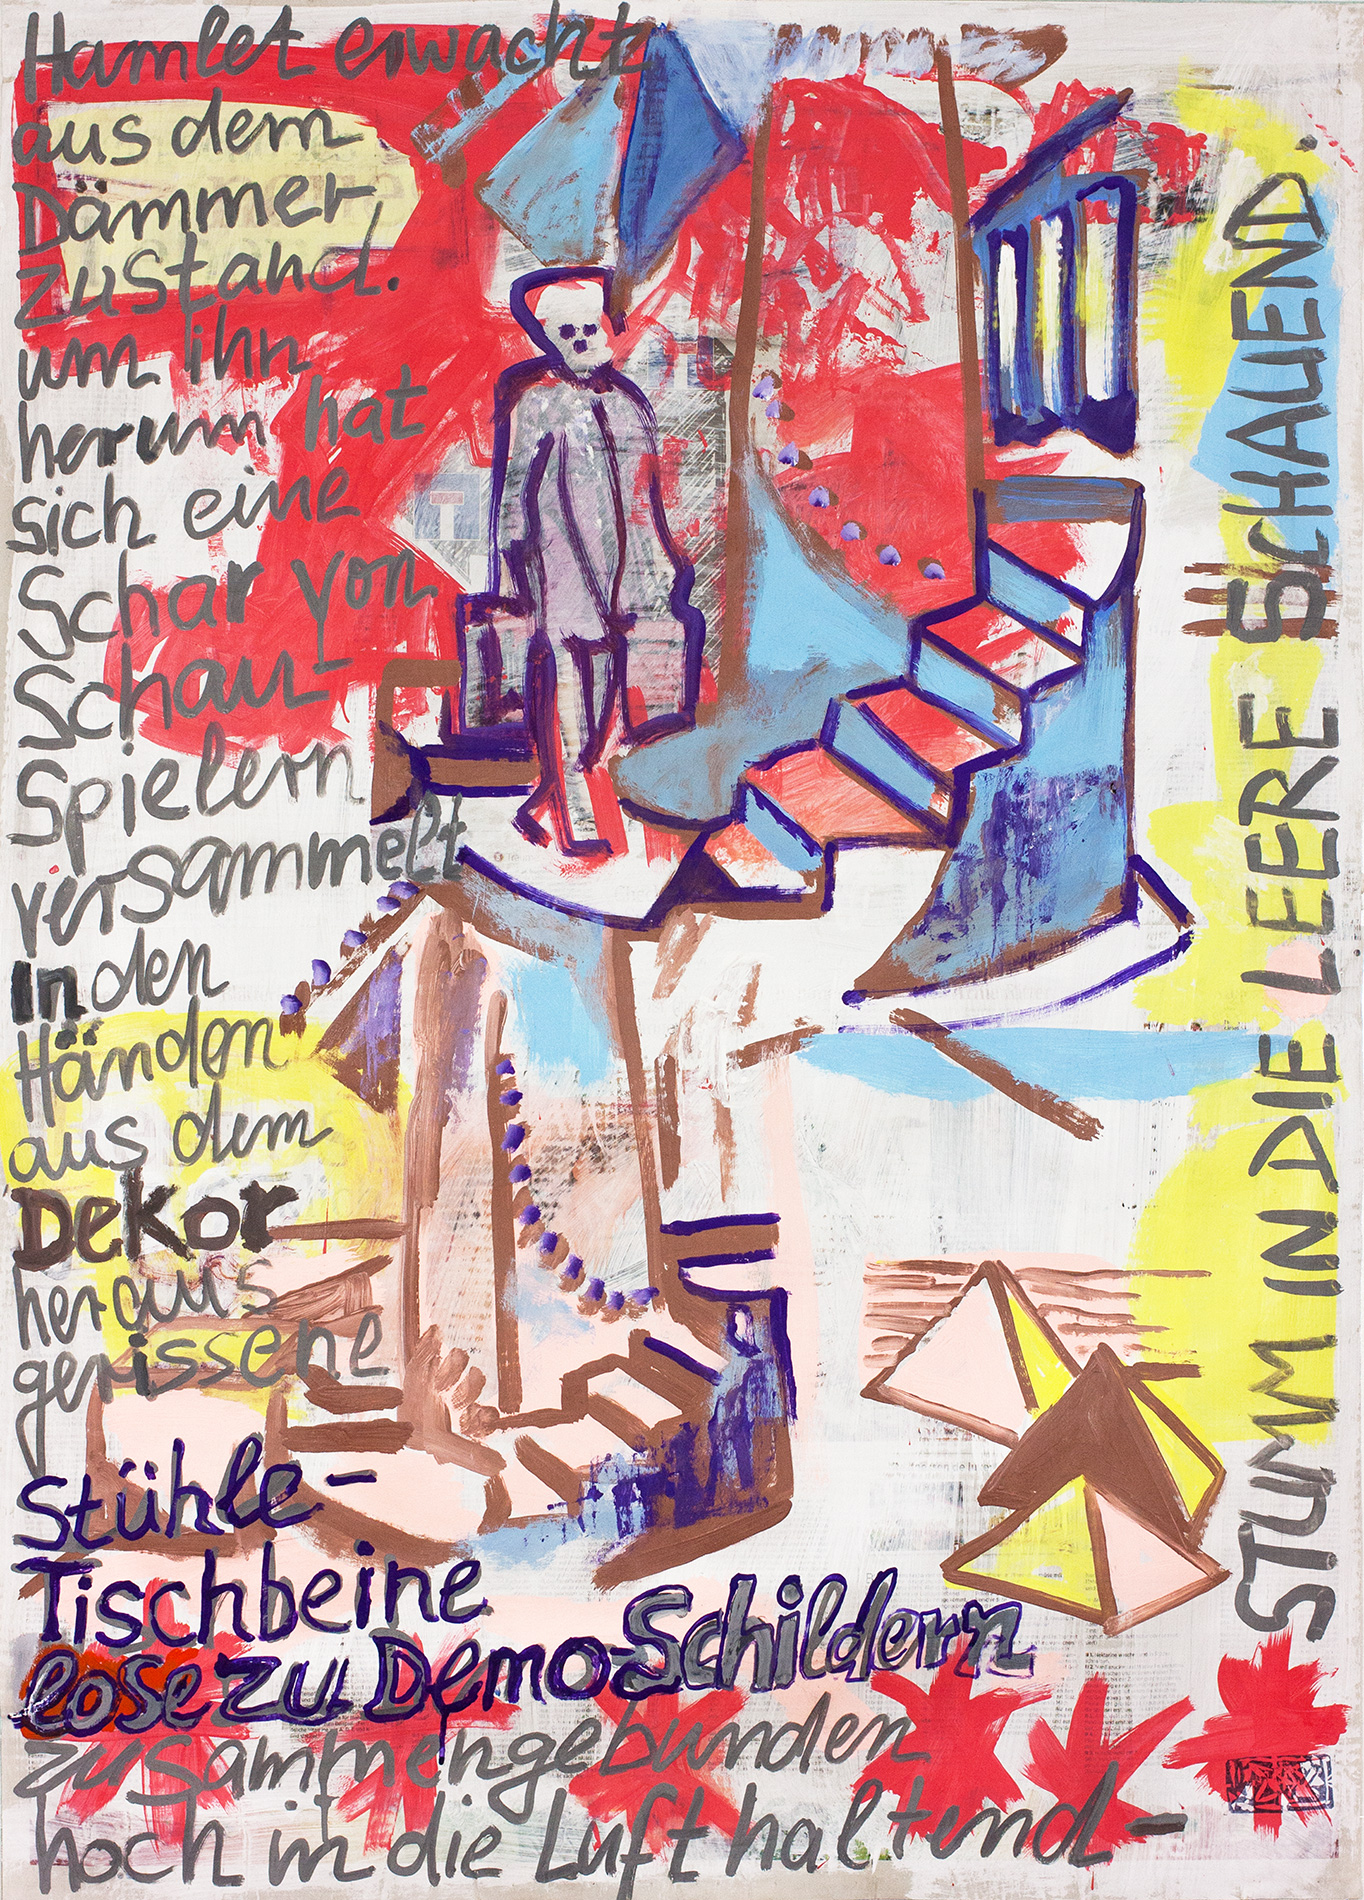 Hamlet erwacht
aus dem
Dämmer
zustand.
um ihn
herum hat
sich eine
Schar von
Schau-
Spielern
versammelt
In den
Händen
aus dem
Dekor
heraus
gerissene
Stühle-
Tischbeine
lose zu Demo-Schildern
zusammengebunden
hoch in die Luft haltend-
STUMM IN DIE LEERE SCHAUEND.